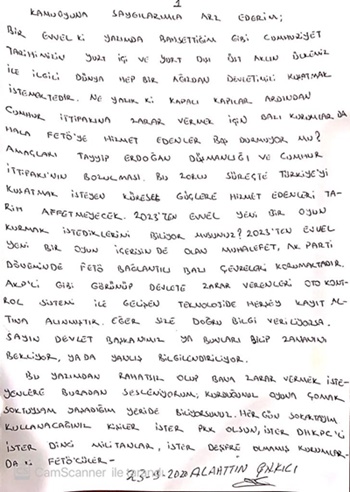 1
KAMUOYUNA SAYGILARIMLA ARZ EDERİM;
BİR EVVELKİ YAZIMDA BAHSETTİĞİM GİBİ CUMHURİYET
TARİHİMİZİN YURT İÇİ VE YURT DIŞI ÜST AKLIN ÜLKEMİZ
İLE İLGİLİ DÜNYA HEP BİR AĞIZDAN DEVLETİMİZİ KUŞATMAK
İSTEMEKTEDİR. NE YAZIK Kİ KAPALI KAPILAR ARDINDAN
CUMHUR İTTİFAKINA ZARAR VERMEK İÇİN BAZI KURUMLAR DA
HALA FETÖ'YE HİZMET EDENLER BOŞ DURMUYOR MU?
AMAÇLARI TAYYİP ERDOĞAN DÜŞMANLIĞI VE CUMHUR
İTTİFAKI'NIN BOZULMASI. BU ZORLU SÜREÇTE TÜRKİYE'Yİ
KUŞATMAK İSTEYEN KÜRESEL GÜÇLERE HİZMET EDENLERİ TA-
RİH AFFETMEYECEK. 2023'TEN EVVEL YENİ BİR OYUN
KURMAK İSTEDİKLERİNİ BİLİYOR MUSUNUZ? 2023'TEN EVVEL
YENİ BİR OYUN İÇERİSİNDE OLAN MUHALEFET, AK PARTİ
DÖNEMİNDE FETÖ BAĞLANTILI BAZI ÇEVRELERİ KORUMAKTADIR.
AKP'Lİ GİBİ GÖRÜNÜP DEVLETE ZARAR VERENLERİ OTO KONT-
ROL SİSTEMİ İLE GELİŞEN TEKNOLOJİDE HERŞEY KAYIT AL-
TINA ALINMIŞTIR. EĞER SİZE DOĞRU BİLGİ VERİLİYORSA,
SAYIN DEVLET BAŞKANIMIZ YA BUNLARI BİLİP ZAMANINI
BEKLİYOR, YA DA YANLIŞ BİLGİLENDİRİLİYOR.
BU YAZIMDAN RAHATSIZ OLUP BANA ZARAR VERMEK İSTE-
YENLERE BURADAN SESLENİYORUM, KURDUĞUNUZ OYUNA ÇOMAK
SOKTUYSAM YAŞADIĞIM YERİDE BİLİYORSUNUZ. HER GÜN SOKAKTAYIM
KULLANACAĞINIZ KİŞİLER İSTER PKK OLSUN, İSTER DHKPC'Lİ
İSTER DİNCİ MİLİTANLAR, İSTER DEŞİFRE OLMAMIŞ KURUMLAR-
DA Kİ FETÖ'CÜLER-
23-9-2020 ALAATTİN ÇAKICI
CamScanner ile tarandı